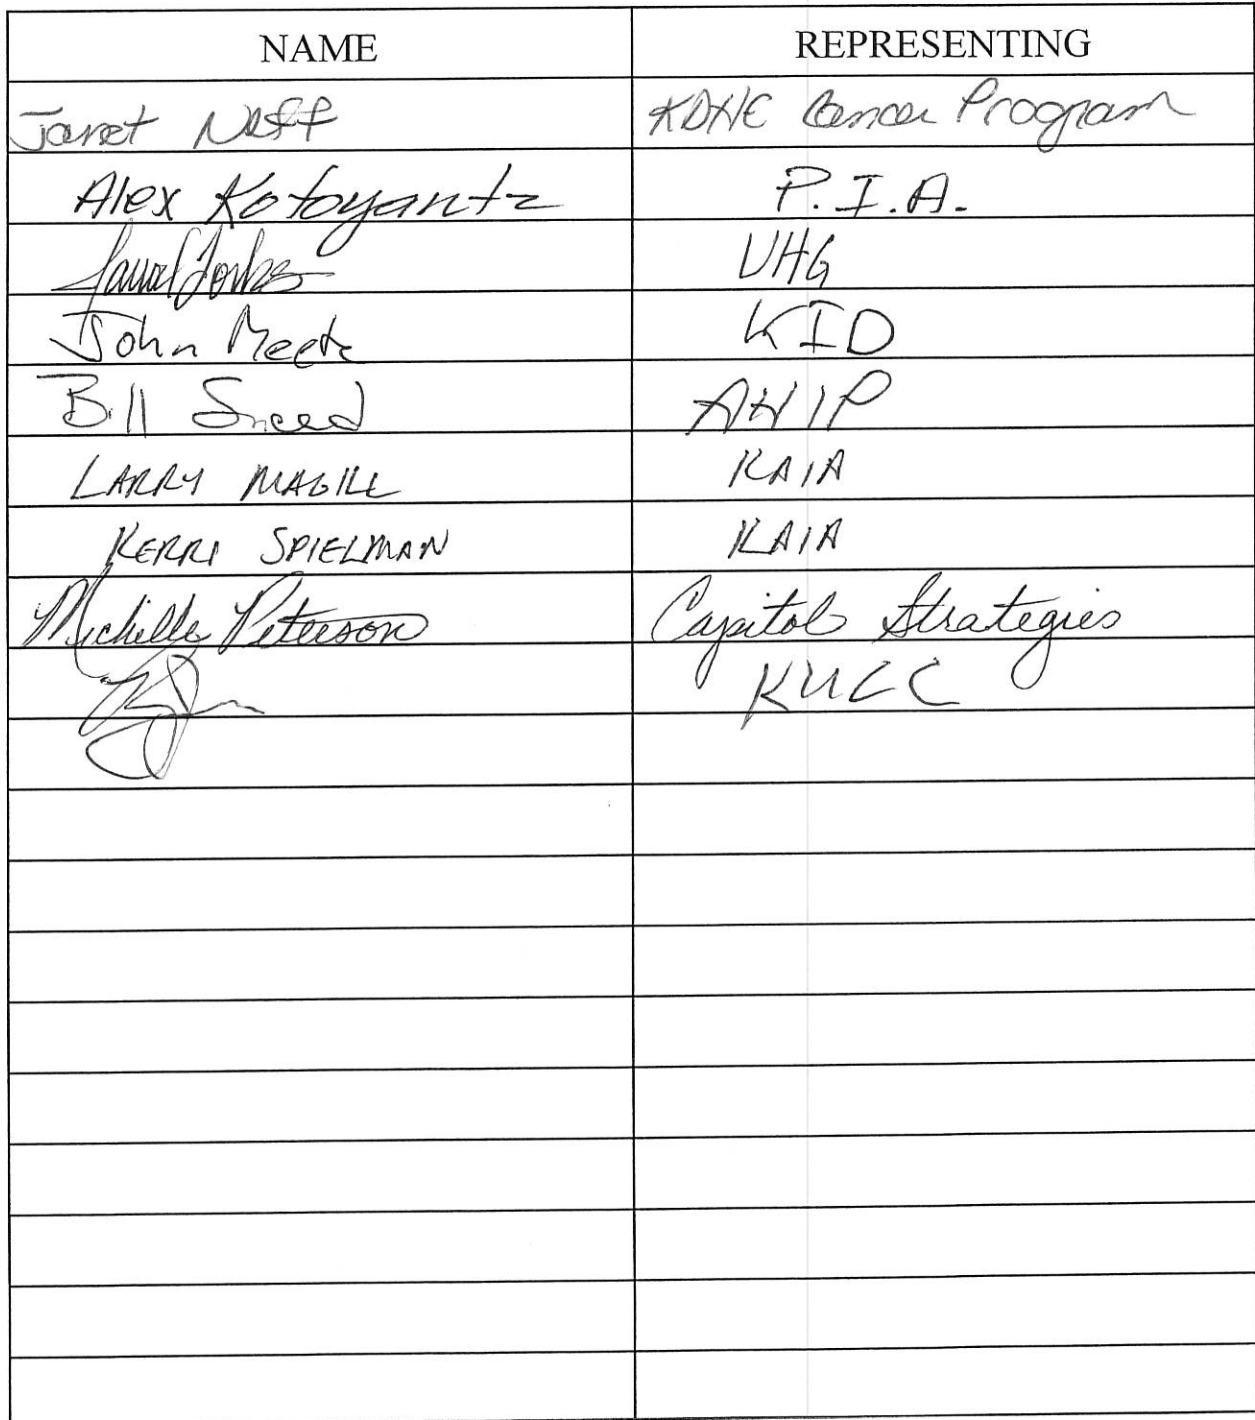 NAME REPRESENTING
Janet Neff KDHE Cancer Program
Alex Kotoyantz P.I.A.
UHG
John Meetz KID
Bill Sneed AHIP
LARRY MAGILL KAIA
KERRI SPIELMAN KAIA
Michelle Peterson Capitol Strategies
KUCC